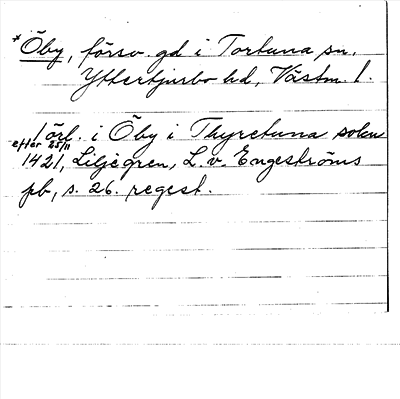 * Öby, försv. gd i Tortuna sn,
Yttertjurbo hd, Västm. l.
1 örl. i Öby i Thyretuna sokn
efter 25/11
1421, Liljegren, L. v. Engeströms
pb, s. 26. regest.